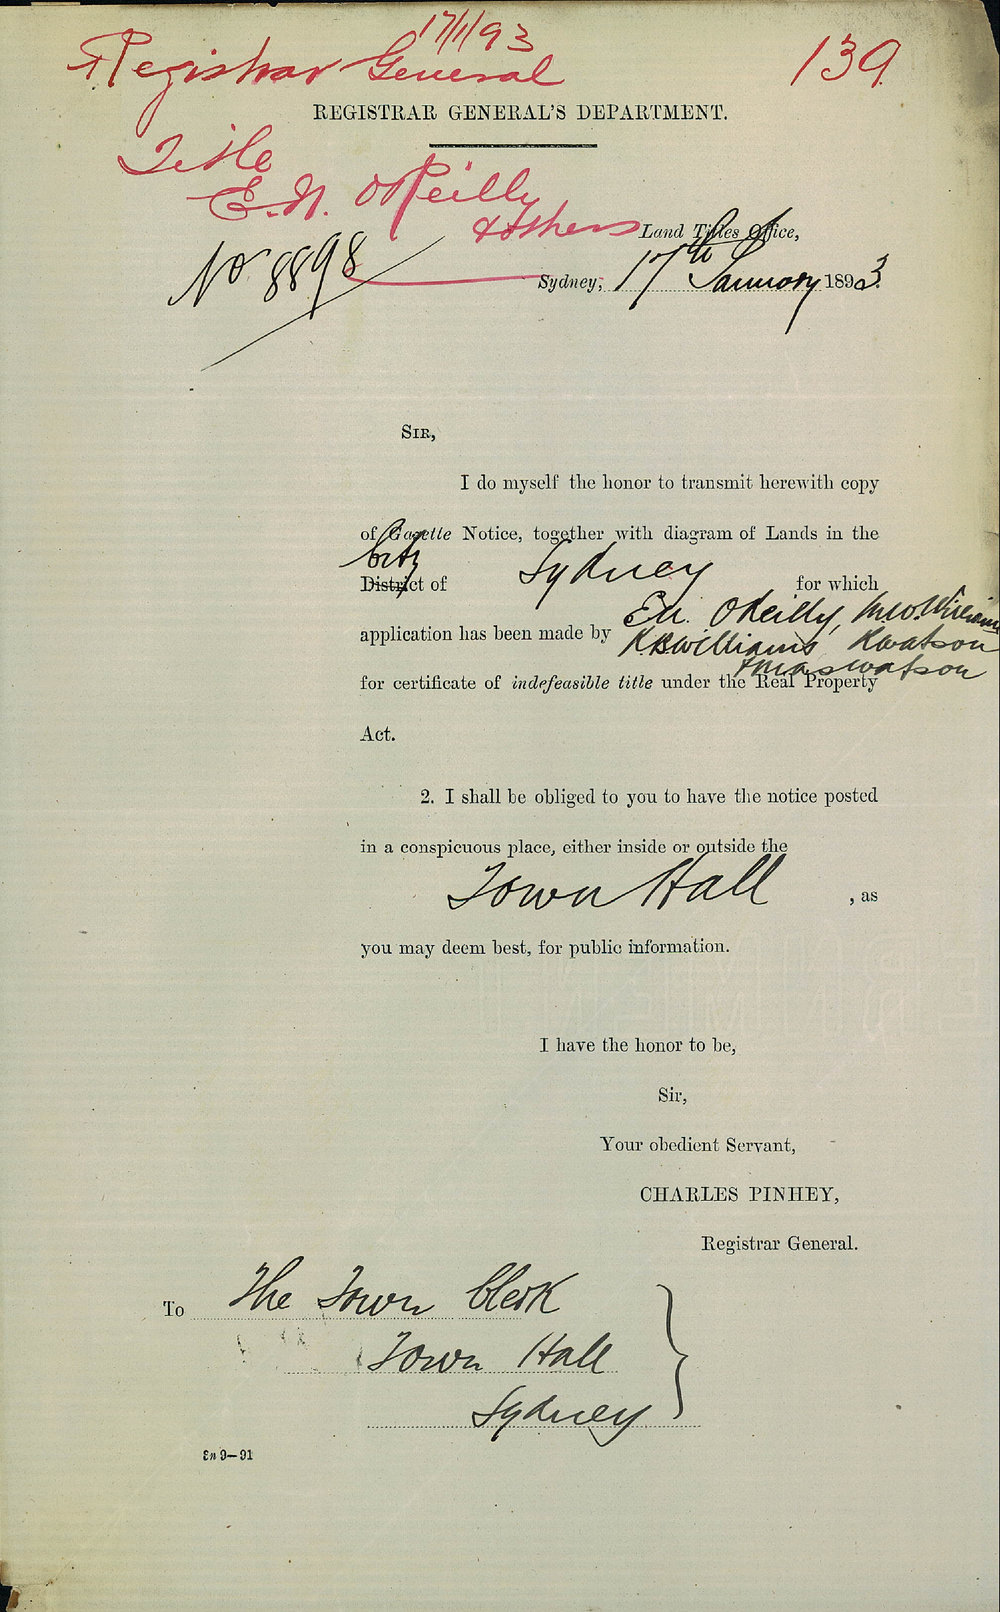 17/1/93
Registrar General
139
REGISTRAR GENERAL'S DEPARTMENT.
Title
E.N. O'Reilly
& others
Land Titles Office,
No 8898
Sydney, 17th January 1893.
SIR,
I do myself the honor to transmit herewith copy
of Gazette Notice, together with diagram of Lands in the
City
District of Sydney for which
application has been made by E.N. O'Reilly, M.W. Williams
K.B. Williams K Watson
Watson
for certificate of indefeasible title under the Real Property
Act.
2. I shall be obliged to you to have the notice posted
in a conspicuous place, either inside or outside the
Town Hall , as
you may deem best, for public information.
I have the honor to be,
Sir,
Your obedient Servant,
CHARLES PINHEY,
Registrar General.
To The Town Clerk
Town Hall
Sydney
9—91